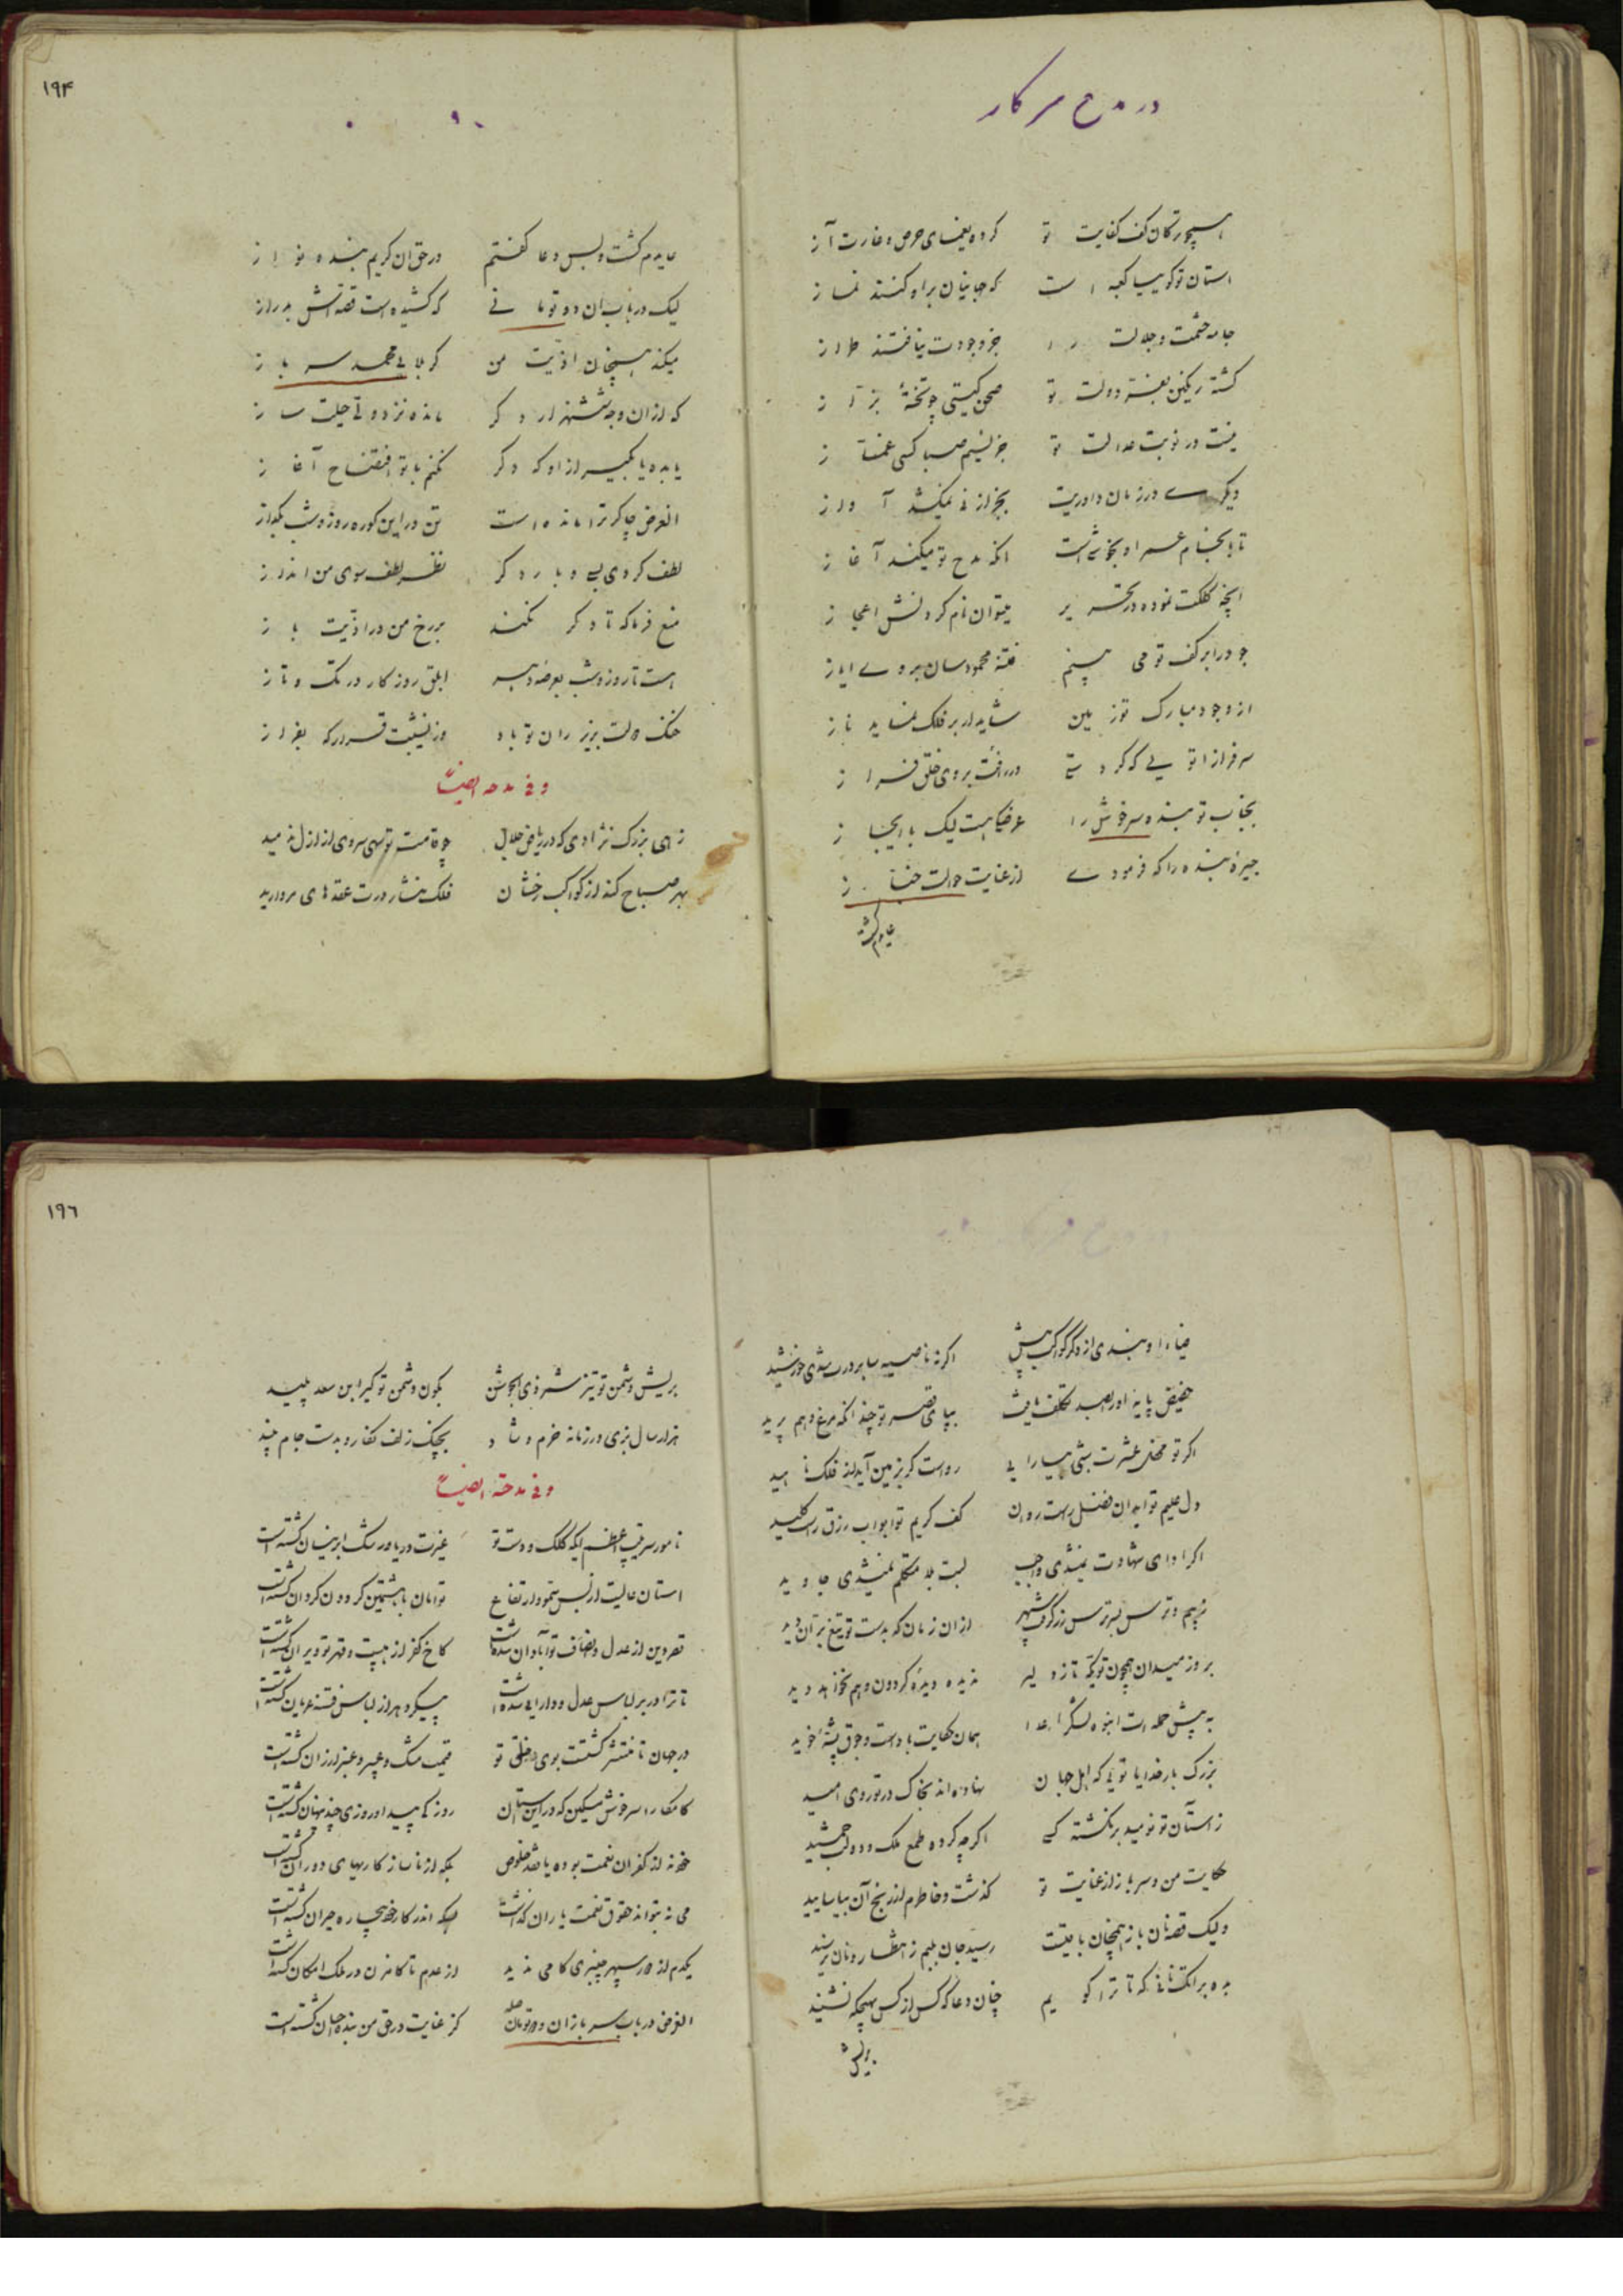 در مدح سرکار
همچو ترکان کف کفایت تو کرده یغمای حرص و غارت آز
استان تو کوییا کعبه است که جهانیان براو کنند نماز
جامه حشمت و جلالت را جز وجودت نیافتند طراز
کشته رنکین بنعمت دولت تو صحن کیتی چو تختهٔ بزاز
نیست در نوبت عدالت تو جز نسیم صبا کسی غماز
دیکری در زمان داوریت بجز از نی نمیکشد آواز
تا بانجام عمر او بخوشی است انکه مدح تو میکند آغاز
انچه کلکت نموده در تحریر میتوان نام کردنش اعجاز
جود را بر کف تو می بینم فتنه محمودسان بروی ایاز
از وجود مبارک تو زمین شاید ار بر فلک نماید ناز
سرفرازا تویی که کردستی در رافت بروی خلق فراز
بجناب تو بنده سرخوش را عرضکیست لیک با ایجاز
جیرهٔ بنده را که فرمودی از عنایت حوالت خباز
عایدم کشته
۱۹۴
عایدم کشت و بس دعا کفتم در حق ان کریم بنده نواز
لیک در باب ان دو تومانی که کشیده است قصه اش بدراز
میکند همچنان اذیت من کربلایی محمد سرباز
که از ان وجه ششهزار دکر مانده نزد وی حیلت ساز
یا بده یا بکیر از او که دکر نکنم با تو افتضاح آغاز
الغرض چاکر ترا مانده است تن در این کوره روز و شب بکداز
لطف کردی بسی دوباره دکر نظر لطف سوی من انداز
منع فرما که تا دکر نکند بر رخ من در اذیت باز
هست تا روز و شب بعرصه دهر ابلق روزکار در تک و تاز
خنک دولت بزیر ران تو باد وز نشیبت قرار که بفراز
و فی مدحه ایضاً
زهی بزرک نژادی که در ریاض جلال چو قامت تو سهی سروی از ازل ندمید
بهر صباح کند از کواکب رخشان فلک نثار درت عقدهای مروارید
ضیاء او نبدی از دکر کواکب بیش اکر نه ناصیه سا بر درت شدی خورشید
حضیض پایه او را بصد تکلف یافت بپای قصر تو چندانکه مرغ وهم پرید
اکر تو محفل عشرت شبی بیارایی رواست کر بزمین آید از فلک ناهید
دل علیم تو ابدان فضل راست روان کف کریم تو ابواب رزق راست کلید
اکر ادای شهادت نبشدی واجب لبت بلا متکلم نمیشدی جاوید
ز بیم و ترس سپر ترس زرکوب سپهر از ان زمان که بدست تو تیغ بران دید
بروز میدان همچون تو یکه تاز دلیر ندیده دیدهٔ کردون و هم نخواهد دید
به پیش حمله ات انبوه لشکر اعدا همان حکایت باد است و جوق پشهٔ خرید
بزرک بار خدایا تویی که اهل جهان نهاده اند بخاک در تو روی امید
ز استان تو نومید بر نکشته کسی اکرچه کرده طمع ملک و دولت جمشید
حکایت من و سرباز از عنایت تو کذشت و خاطرم از رنج آن بیاسایید
ولیک قصه نان باز همچنان باقیست رسید جان بلبم ز انتظار و نان نرسید
بده برات نانی که تا ترا کویم چنان دعا که کس از کس بهیچکه نشنید
بریش
۱۹٦
بریش دشمن تو تیز شمر ذی الجوشن بکون دشمن تو کیر ابن سعد پلید
هزار سال بزی در زمانه خرم و شاد بچنک زلف نکار و بدست جام نبید
و فی مدحه ایضاً
نامور سرتیپ اعظم ایکه کلک و دست تو غیرت دریا و رشک ابر نیسان کشته است
استان عالیت از بس نمود ارتفاع توامان با هشتمین کردون کردان کشته است
قصر دین از عدل و انصاف تو آبادان شده است کاخ کفر از هیبت و قهر تو ویران کشته است
تا ترا در بر لباس عدل و دارایی شده است پیکر دهر از لباس فتنه عریان کشته است
در جهان تا منتشر کشتست بوی خلق تو قیمت مشک و عبیر و عنبر ارزان کشته است
کامکارا سرخوش مسکین که در این استان روزکی پیدا و روزی چند پنهان کشته است
خود نه از کفران نعمت بوده یا نقد خلوص بلکه از ناسازکاریهای دوران کشته است
می نه بتواند حقوق نعمت یاران کذاشت لیک اندر کار خود بیچاره حیران کشته است
یکدم از دور سپهر چنبری کامی ندید از عدم تا کامزن در ملک امکان کشته است
الغرض در باب سربازان و دو تومان کز عنایت در حق من بنده احسان کشته است